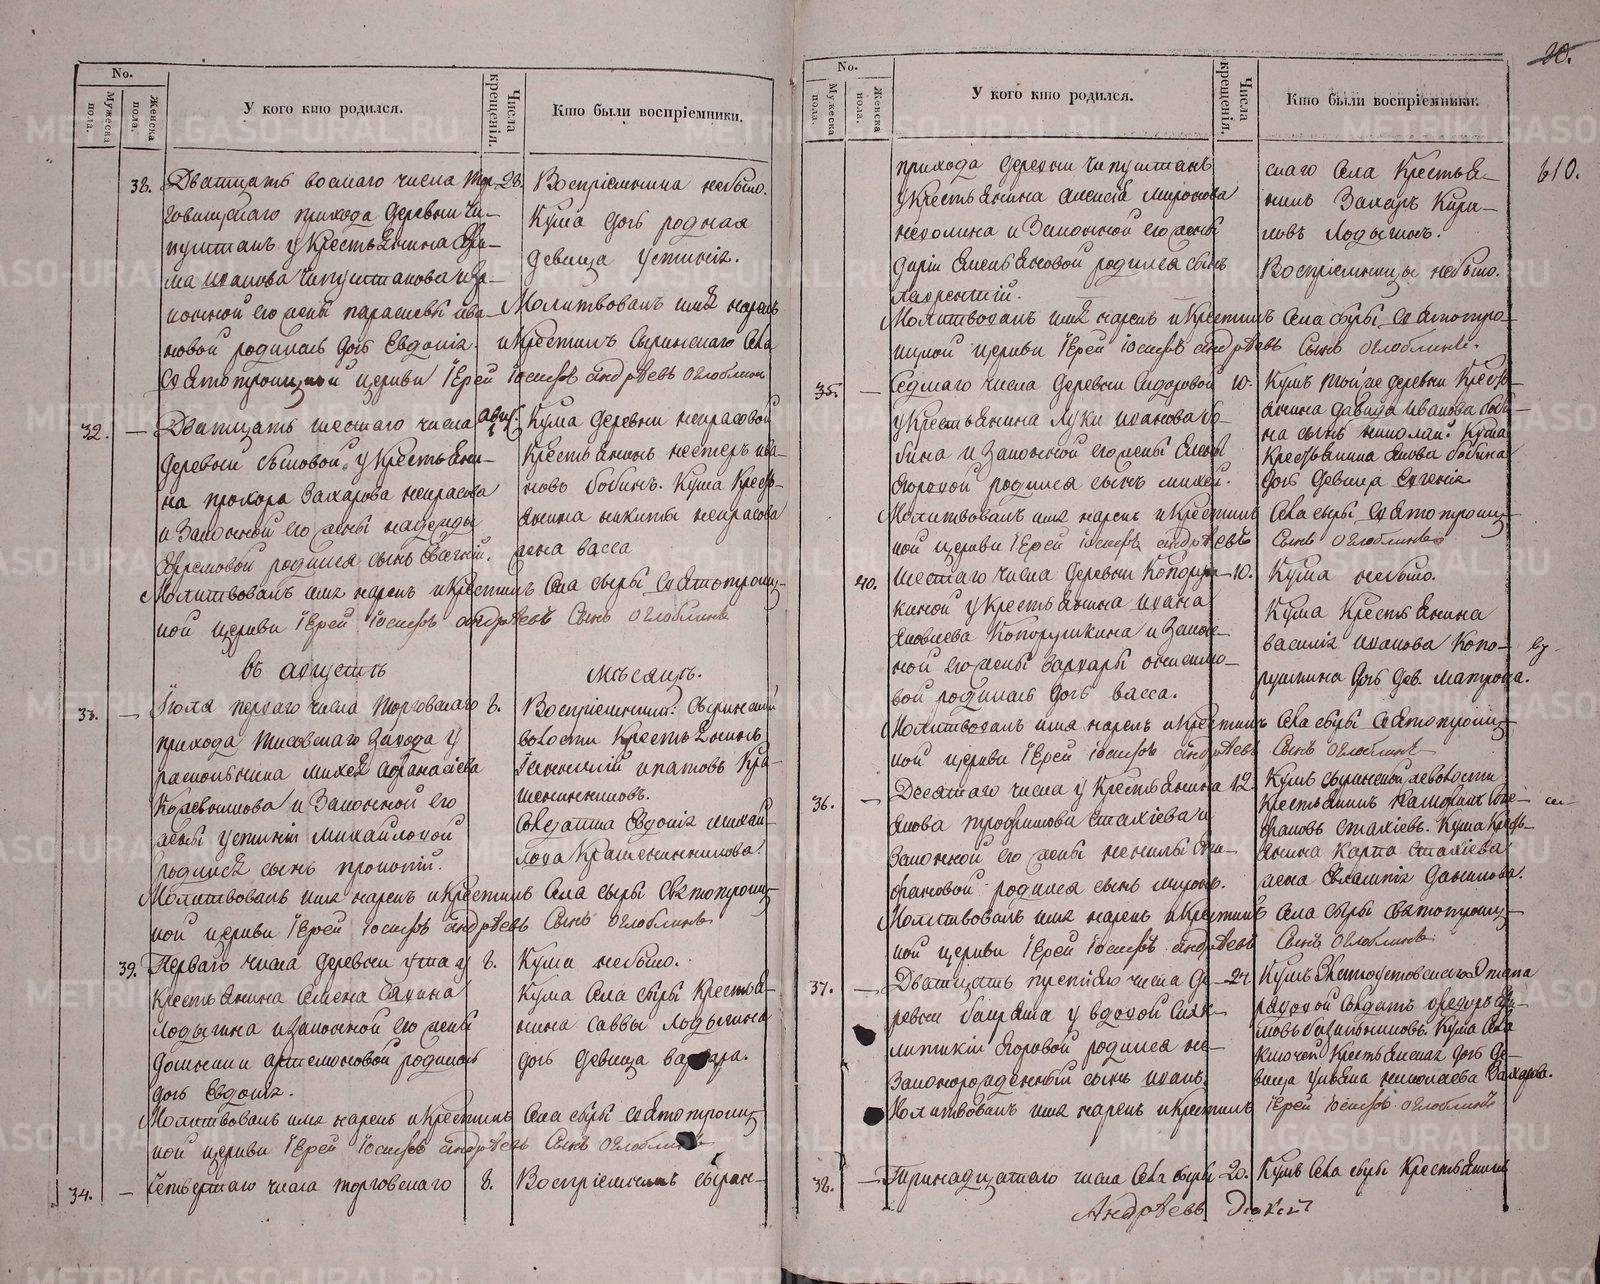 No.
Мужеска пола.
Женска пола.
У кого кто родился.
Числа крещенія.
Кто были воспріемники.
38. Дватцать восмаго числа Тор- 28.
говищскаго прихода деревни Чи-
пуштанъ у Крестьянина
ма Иванова Чипуштанова и за-
конной его жены Парасковьи Ива-
новой родилась дочь Евдокія.
Воспріемника небыло.
Кума дочь родная
девица Устинія.
Молитвовалъ имя нарекъ
и Крестилъ Сыринскаго Села
Святотроицкой церкви Іерей Іосифъ Андрѣевъ Оглоблинъ
32. — Дватцать шестаго числа авгус. 1.
деревни Сысовой у Крестьяни-
на Прохора Захарова Некрасова
и Законной его жены Надежды
Ефремовой родился сынъ Евгеній.
Кумъ деревни Некрасовой
Крестьянинъ Нестеръ Ива-
новъ Бобинъ. Кума Кресть-
янина Никиты Некрасова
жена Васса
Молитвовалъ имя нарекъ и Крестилъ Села Сыры Святотроиц-
кой церкви Іерей Іосифъ Андрѣевъ Сынъ Оглоблинъ
Въ Августѣ
Мѣсяцѣ.
33. — Іюля перваго числа Торговскаго 8.
прихода Тисовскаго Завода у
раскольника Михея Афанасіева
Кожевникова и Законной его
жены Устиніи Михайловой
родился сынъ Прокопій.
Воспріемникъ: Сыринской
волости Крестьянинъ
Ипатовъ Кра-
шенинниковъ.
Солдатка Евдокія Михай-
лова Крашенинникова.
Молитвовалъ имя нарекъ и Крестилъ Села Сыры Святотроиц-
кой церкви Іерей Іосифъ Андрѣевъ Сынъ Оглоблинъ
39. Перваго числа деревни у 8.
Крестьянина Семена Савина
Лодыгина и Законной его жены
Домники Артемоновой родилась
дочь Евдокія.
Кума небыло.
Кума Села Сыры Крестья-
нина Саввы Лодыгина
дочь девица Варвара.
Молитвовалъ имя нарекъ и Крестилъ Села Сыры Святотроиц-
кой церкви Іерей Іосифъ Андрѣевъ Сынъ Оглоблинъ
34. — Четвертаго числа Торговскаго 8. Воспріемникъ Сырин-
20.
610.
No.
Мужеска пола.
Женска пола.
У кого кто родился.
Числа крещенія.
Кто были воспріемники.
прихода деревни Чипуштанъ
у Крестьянина Алексѣя Миронова
и Законной его жены
Дарьи Емельяновой родился сынъ
Лаврентій.
скаго Села Крестья-
нинъ Захаръ Кири-
ловъ Лодыгинъ.
Воспріемницы небыло.
Молитвовалъ имя нарекъ и Крестилъ Села Сыры Святотро-
ицкой церкви Іерей Іосифъ Андрѣевъ Сынъ Оглоблинъ.
35. — Седмаго числа деревни Сидоровой 10.
у Крестьянина Луки Иванова Бо-
бина и Законной его жены Елены
Егоровой родился сынъ Михей.
Кумъ той же деревни Кресть-
янина Давида Иванова Боби-
на сынъ Николай. Кума
Крестьянина Якова Бобина
дочь девица Евгенія
Молитвовалъ имя нарекъ и Крестилъ Села Сыры Святотроиц-
кой церкви Іерей Іосифъ Андрѣевъ Сынъ Оглоблинъ
40. Шестаго числа деревни Копору- 10.
киной у Крестьянина Ивана
Яковлева Копорушкина и Закон-
ной его жены Варвары Онисимо-
вой родилась дочь Васса.
Кума небыло.
Кума Крестьянина
Василія Иванова Копо-
рушкина дочь дев. Матрона.
Молитвовалъ имя нарекъ и Крестилъ Села Сыры Святотроиц-
кой церкви Іерей Іосифъ Андрѣевъ Сынъ Оглоблинъ
36. — Десятаго числа у Крестьянина 12.
Якова Трофимова Стахіева и
Законной его жены Ненилы Сте-
фановой родился сынъ Миронъ.
Кумъ Сыринской волости
Крестьянинъ Сте-
фановъ Стахіевъ. Кума Кресть-
янина Карпа Стахіева
жена Евлампія Данилова.
Молитвовалъ имя нарекъ и Крестилъ Села Сыры Святотроиц-
кой церкви Іерей Іосифъ Андрѣевъ Сынъ Оглоблинъ
37. — Дватцать третіяго числа де- 24.
ревни Баиряка у вдовой Сик-
литикіи Егоровой родился не-
законорожденный сынъ Иванъ.
Кумъ Златоустовскаго Этапа
рядовой солдатъ Ѳедоръ
Кума Села
Ключей Крестьянская дочь де-
вица Ульяна Николаева Захарова.
Молитвовалъ имя нарекъ и Крестилъ Іерей Іосифъ Оглоблинъ
38. — Тринадцатаго числа Села Сыры 20. Кумъ Села Сыры Крестьянинъ
Андрѣевъ
METRIKI.GASO-URAL.RU